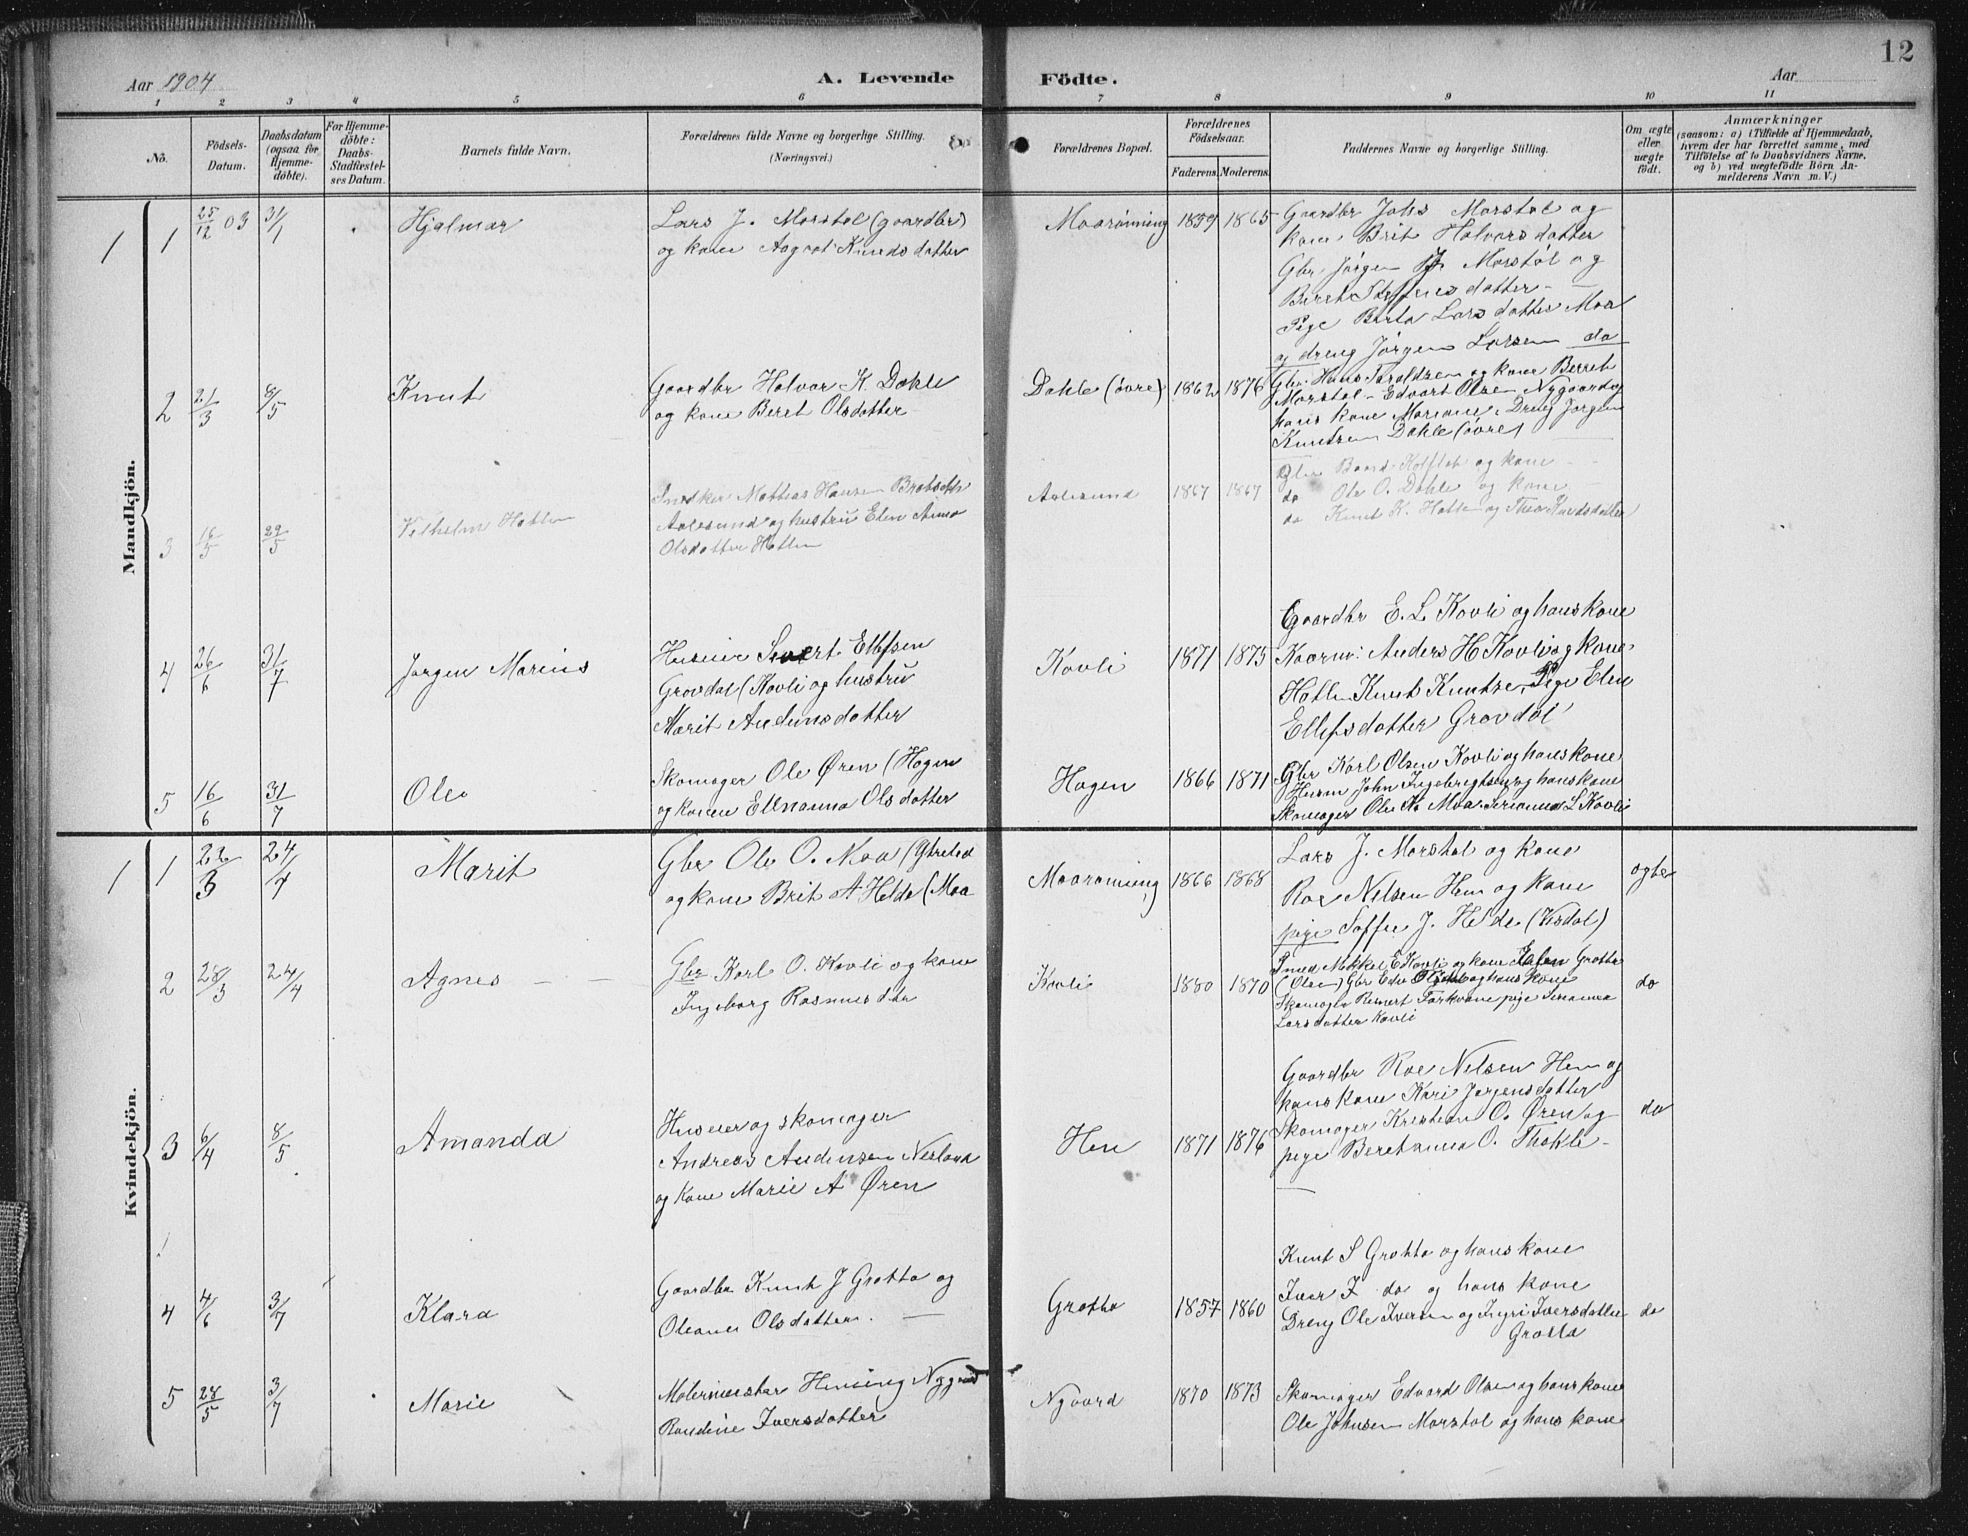 12
Aar 1904
A. Levende
Födte.
Aar
1 2 3 4 5 6 7 8 9 10 11
No.
Födsels-Datum.
Daabsdatum (ogsaa for Hjemme-döbte).
For Hjemme-döbte: Daabs-Stadfæstel-ses Datum.
Barnets fulde Navn.
Forældrenes fulde Navne og borgerlige Stilling.
(Næringsvei.)
Forældrenes Bopæl.
Forældrenes Födselsaar.
Faderens. Moderens.
Faddernes Navne og borgerlige Stilling.
Om ægte eller uægte födt.
Anmærkninger
(saasom: a) i Tilfælde af Hjemmedaab,
hvem der har forrettet samme, med
Tilföielse af to Daabsvidners Navne,
og b) ved uægtefödte Börn An-
melderens Navn m. V.)
Mandkjön.
1 1 25/12 03 31/1 Hjalmar
Lars J. Morstøl (gaardbr)
og kone Aagot Knudsdatter
Moarøming 1859 1865
Gaardbr Johs Morstøl og
kone Brit Halvorsdatter
Gbr Jørgen J. Morstøl og
Beret Steffensdatter
Pige Berta Larsdatter Moa
og dreng Jørgen Larsen do
2 21/3 8/5 Knut
Gaardbr Halvor K. Dahle
og kone Beret Olsdatter
Dahle (övre) 1862 1876
Gbr Hans Taraldsen og kone Berret
Morstøl - Edvart Olsen Nygaard og
hans kone Mariane, Dreng Jørgen
Knutsen Dahle (øvre)
3 16/5 22/5 Vilhelm Hatlen
Snedker Mathias Hansen
Aalesund og hustru Elen Anna
Olsdatter Hatlen
Aalesund 1867 1867
Gbr Baard Kofløt og kone
do Ole O. Dahle og kone
do Knut K. Hatlen og Thea Knudsdatter
4 26/6 31/7 Jørgen Marius
Husmr Sivert Ellefsen
Grovdal (Kovli og hustru
Marit Audunsdatter
Kovli 1871 1875
Gaardbr E. L. Kovli og hans kone
Kaarm: Anders H Kovli og kone
Hatlen Knut Knutsen, Pige Elen
Ellefsdatter Grovdal
5 16/6 31/7 Ole
Skomager Ole Øren (Hagen
og konen Ellnanna Olsdatter
Hagen 1866 1871
Gbr Karl Olsen Kovli og hans kone
Husm John Ingebrigtsen og hans kone
Skomager Ole K. Moa Serianna L Kovli
Kvindekjön.
1 1 22/3 24/4 Marit
Gbr Ole O. Moa (Ytrelid
og kone Brit A Helde (Moa
Moaroming 1866 1868
Lars J. Morstøl og kone
Roe Nilsen Hen og kone
pige Soffie J. Helde (Visdal)
ogte
2 28/3 24/4 Agnes
Gbr Karl O. Kovli og kone
Ingeborg Rasmusdtr
Kovli 1880 1870
Sned Mikkel E Kovli og kone Elen Grotta
(Olsen) Gbr og hans kone
Skomager Reinert pige Serianna
Larsdatter Kovli
do
3 6/4 8/5 Amanda
Huseier og skomager
Andreas Audensen Nesland
og Kone Marie A Øren
Hen 1871 1876
Gaardbr Roe Nilsen Hen og
hans kone Kari Jørgensdatter
Skomager Kristian O. Øren og
pige Beretanna O. Thokle
do
4 4/6 3/7 Klara
Gaardbr Knut J Grotta og
Oleane Olsdatter.
Grotta 1857 1860
Knut S Grotta og hans kone
Iver I do og hans kone
Dreng Ole Iversen og Ingri Iversdatter
Grotta
do
5 28/5 3/7 Marie
Malermester Henning Nygaard
Randine Iversdatter
Ngaard 1870 1873
Skomager Edvard Olsen og hans kone
Ole Johnsen Morstøl og hans kone